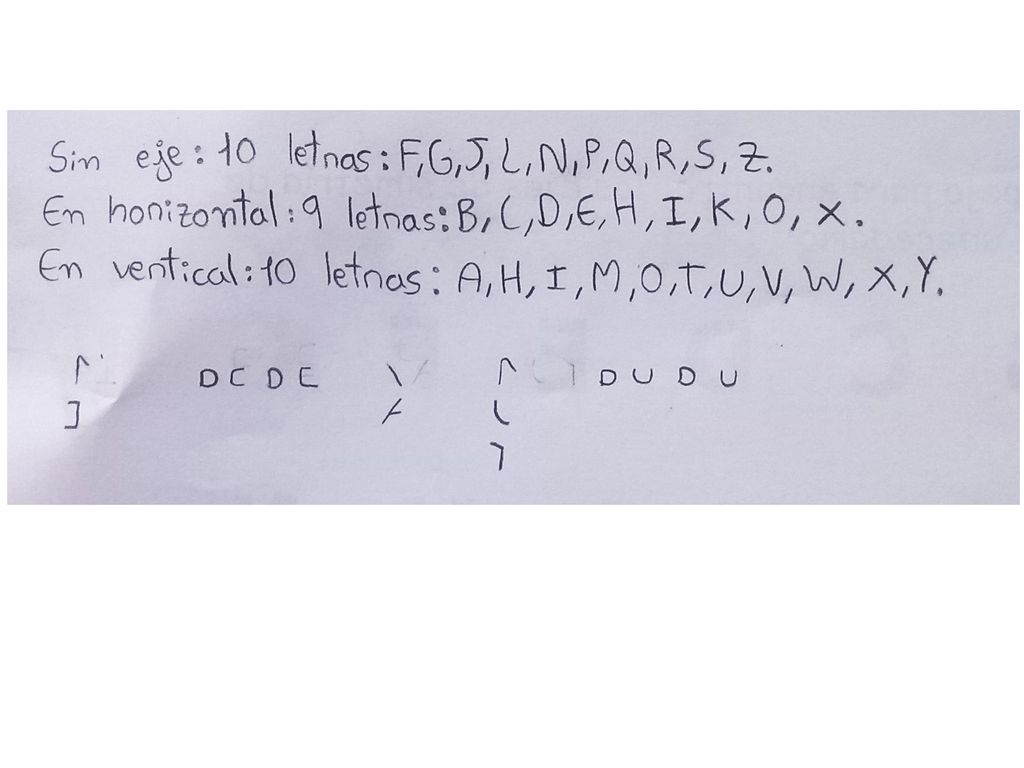 Sin eje: 10 letras: F, G, J, L, N, P, Q, R, S, Z.
En horizontal: 9 letras: B, C, D, E, H, I, K, O, X.
En vertical: 10 letras: A, H, I, M, O, T, U, V, W, X, Y.
D C D C
D U D U